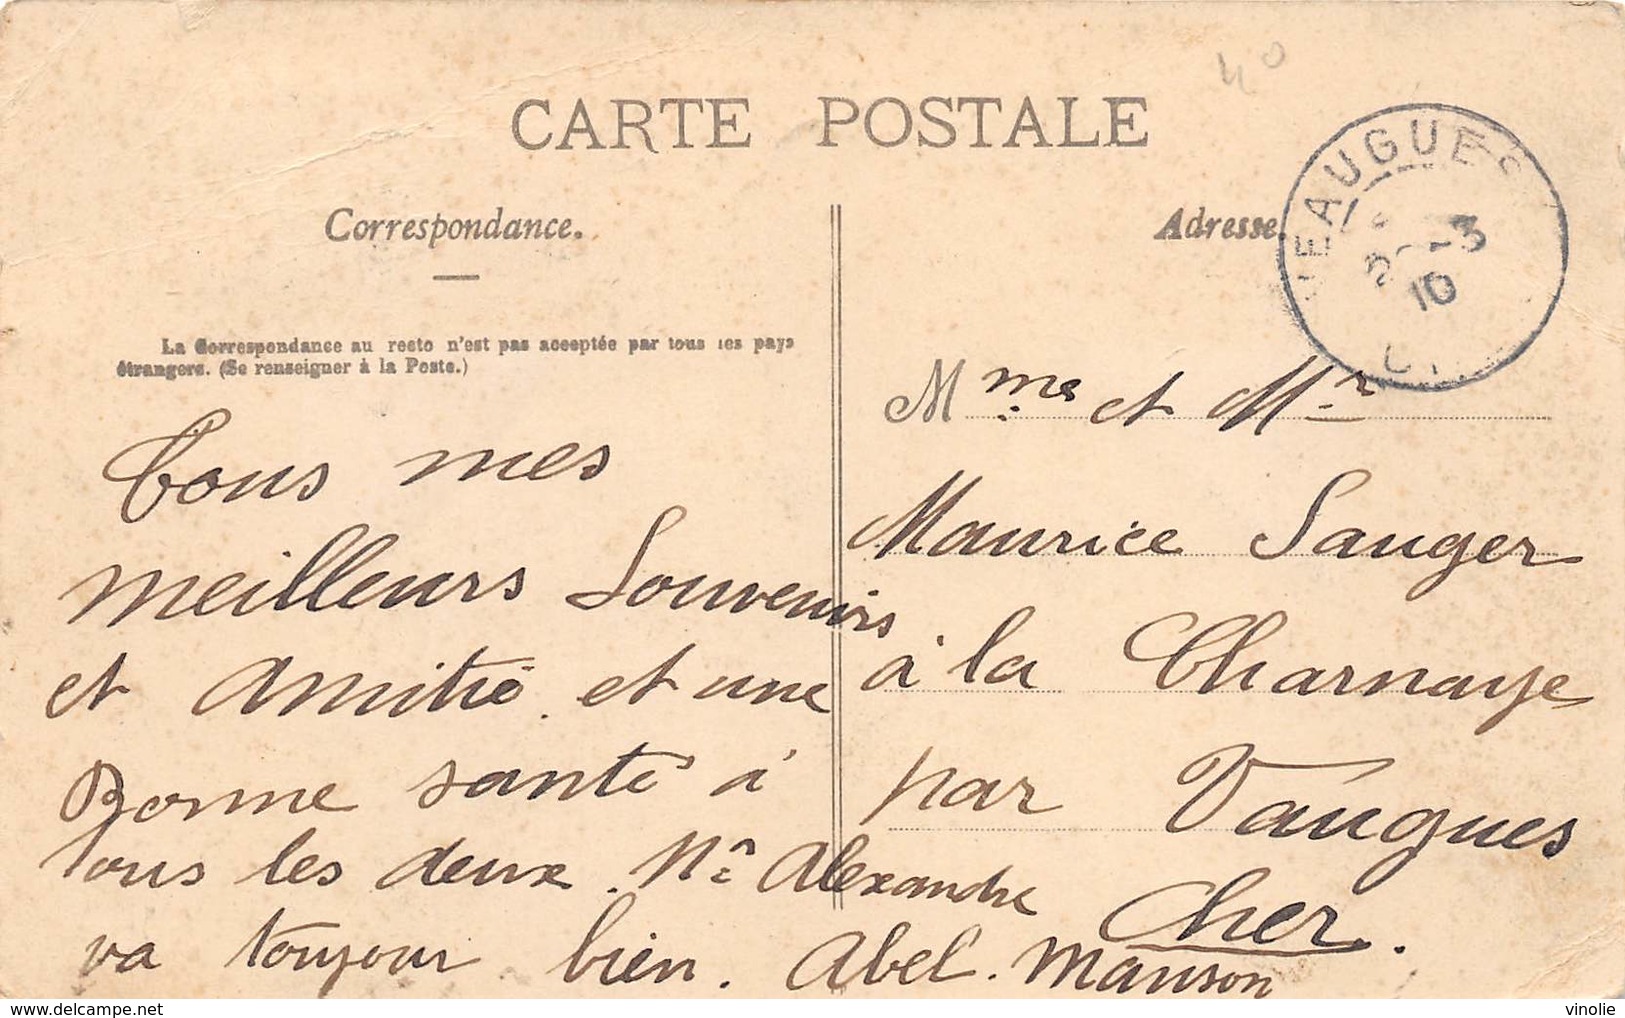 40
CARTE POSTALE
Correspondance.
Adresse.
VEAUGUES
-3
10
La Correspondance au recto n'est pas acceptée par tous les pays
étrangers. (Se renseigner à la Poste.)
Tous mes
meilleurs Souvenirs
et Amitié et une
Bonne santé à
tous les deux. Mr Alexandre
va toujour bien. Abel. Manson
Mme et Mr
Maurice Sauger
à la Charnaye
par Vaugues
Cher.
delcampe.net
vinolie